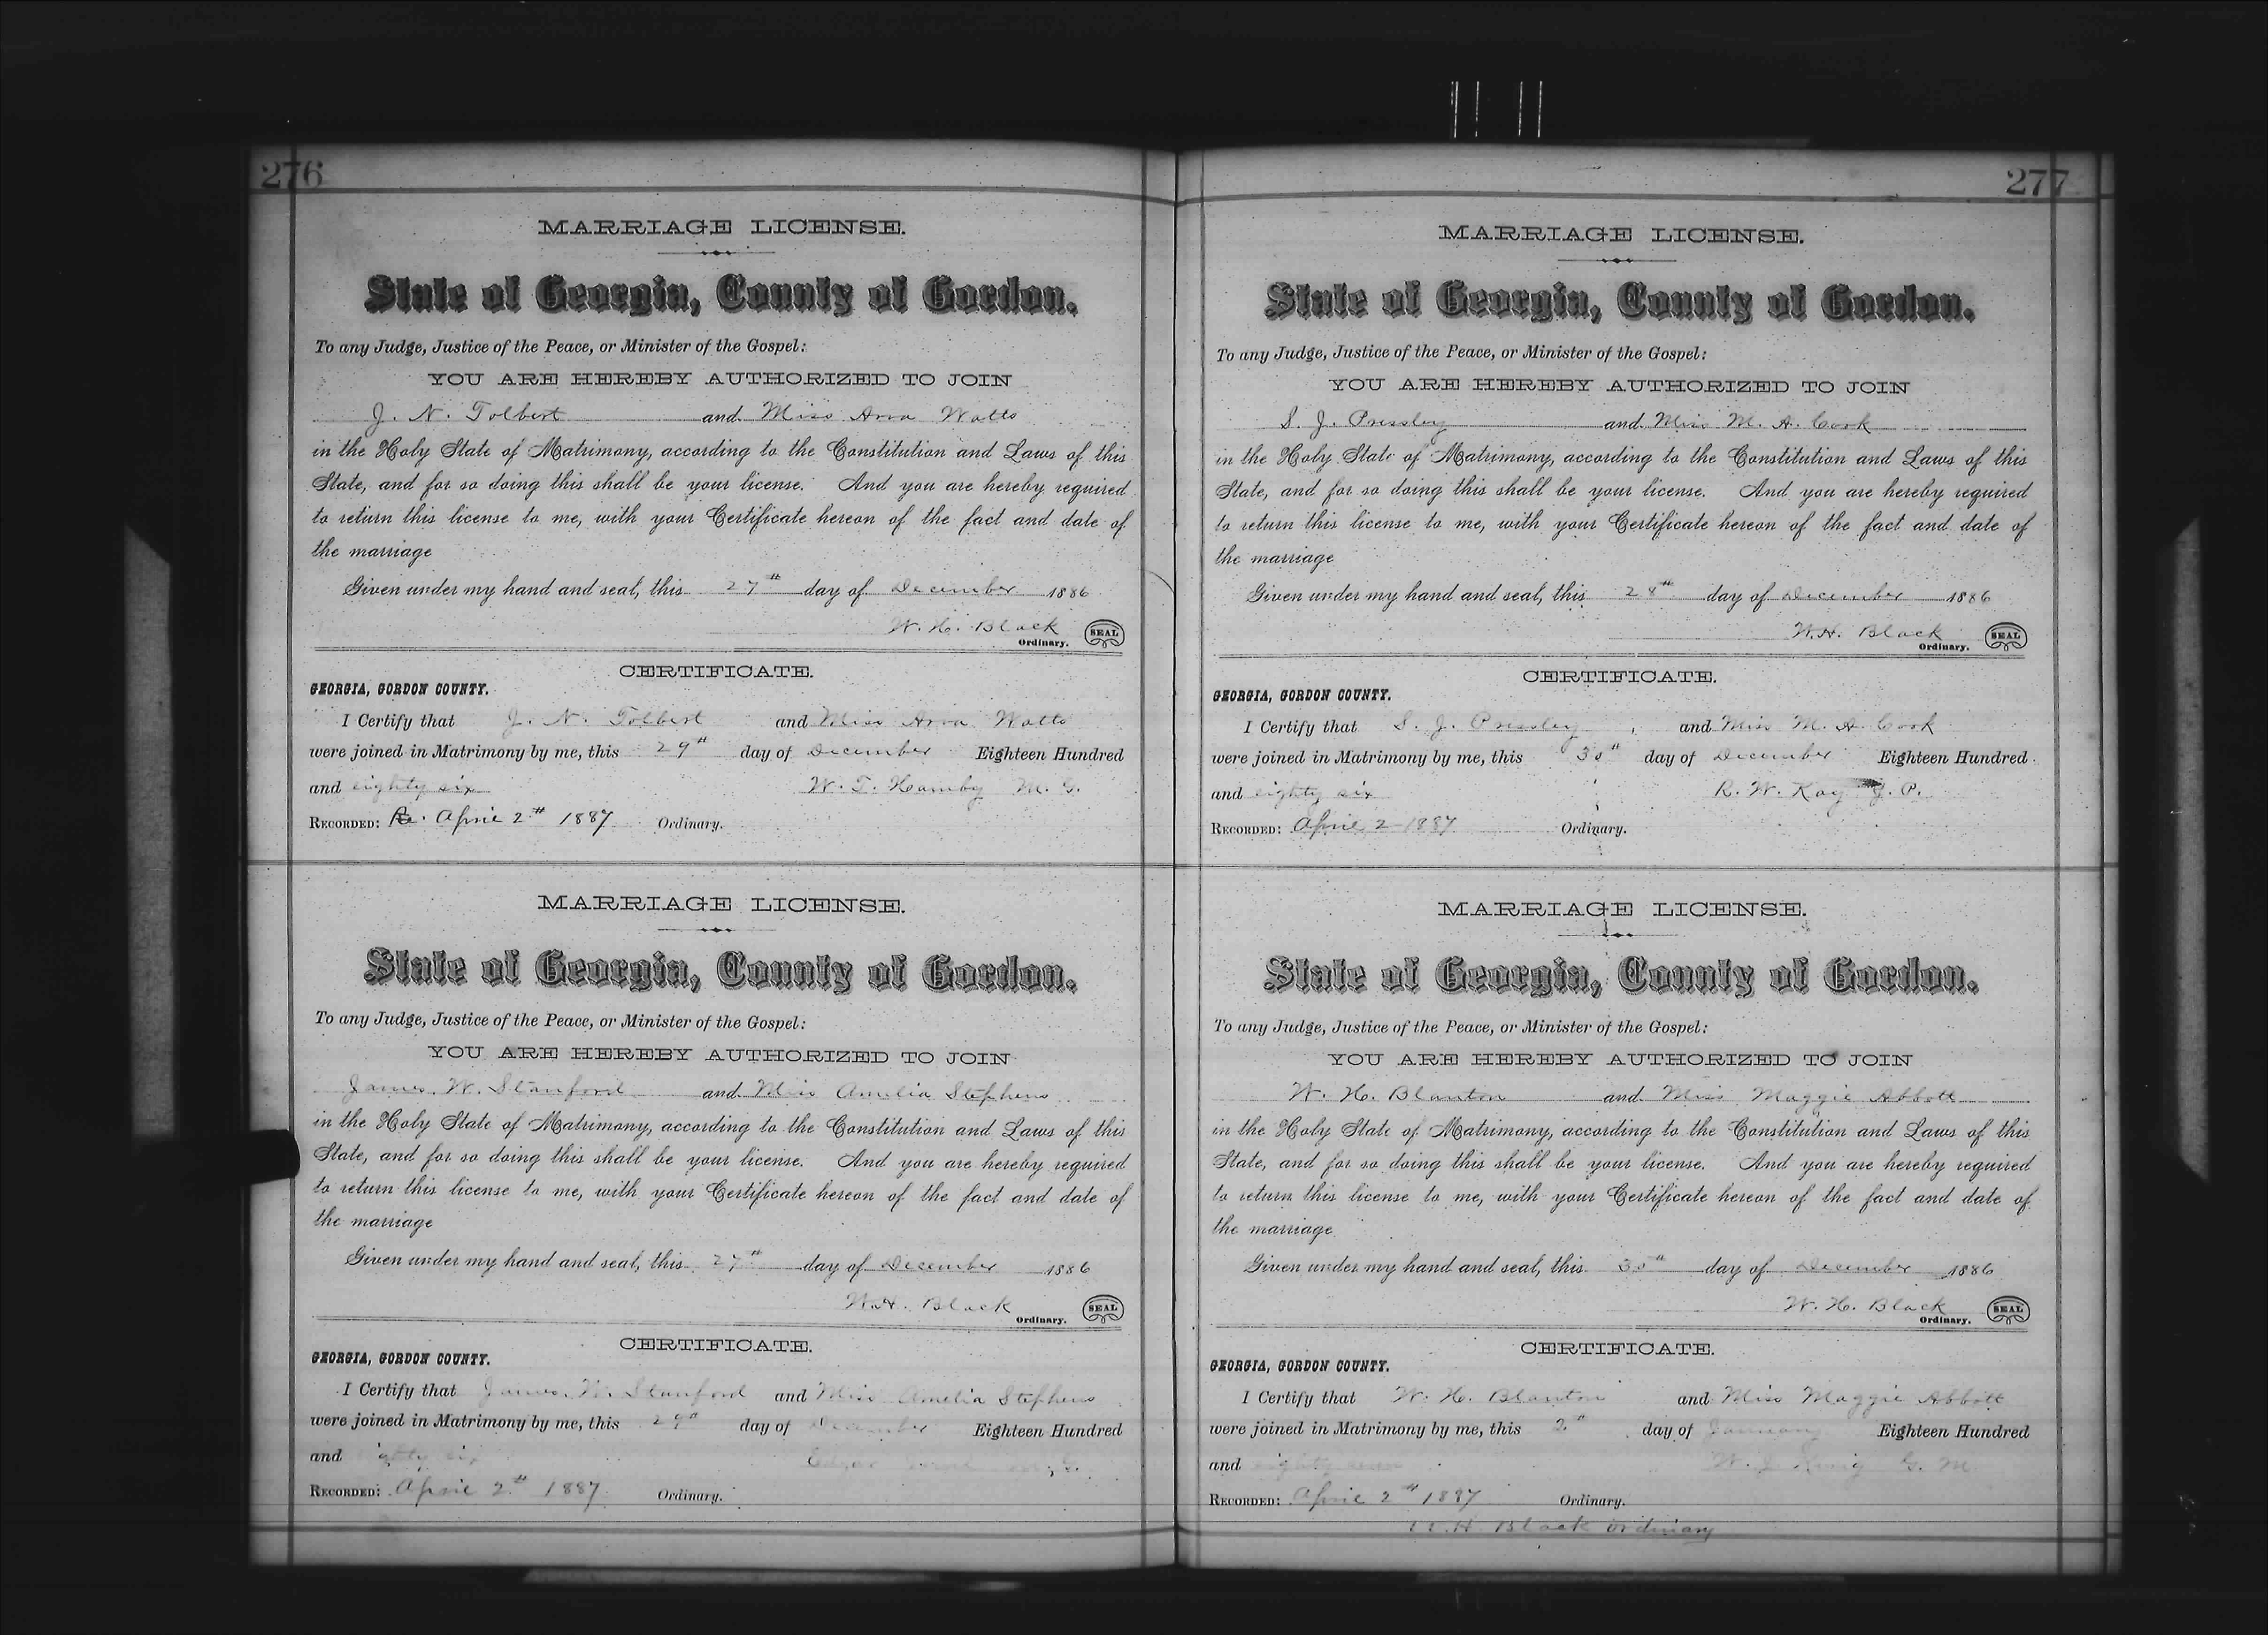 276
MARRIAGE LICENSE.
State of Georgia, County of Gordon.
To any Judge, Justice of the Peace, or Minister of the Gospel:
YOU ARE HEREBY AUTHORIZED TO JOIN
J. N. Tolbert and Miss Watts
in the Holy State of Matrimony, according to the Constitution and Laws of this
State, and for so doing this shall be your license. And you are hereby required
to return this license to me, with your Certificate hereon of the fact and date of
the marriage
Given under my hand and seal, this 27th day of December 1886
W. H. Black SEAL
Ordinary.
CERTIFICATE.
GEORGIA, GORDON COUNTY.
I Certify that J. N. Tolbert and Miss Watts
were joined in Matrimony by me, this 29th day of December Eighteen Hundred
and eighty six W. T. Hamby M. G.
RECORDED: April 2th 1887 Ordinary.
MARRIAGE LICENSE.
State of Georgia, County of Gordon.
To any Judge, Justice of the Peace, or Minister of the Gospel:
YOU ARE HEREBY AUTHORIZED TO JOIN
James W. Stanford and Miss Amelia Stephens
in the Holy State of Matrimony, according to the Constitution and Laws of this
State, and for so doing this shall be your license. And you are hereby required
to return this license to me, with your Certificate hereon of the fact and date of
the marriage
Given under my hand and seal, this 27th day of December 1886
W. H. Black SEAL
Ordinary.
CERTIFICATE.
GEORGIA, GORDON COUNTY.
I Certify that James W. Stanford and Miss Amelia Stephens
were joined in Matrimony by me, this 29th day of December Eighteen Hundred
and eighty six
RECORDED: April 2th 1887 Ordinary.
277
MARRIAGE LICENSE.
State of Georgia, County of Gordon.
To any Judge, Justice of the Peace, or Minister of the Gospel:
YOU ARE HEREBY AUTHORIZED TO JOIN
S. J. Pressley and Miss M. A. Cook
in the Holy State of Matrimony, according to the Constitution and Laws of this
State, and for so doing this shall be your license. And you are hereby required
to return this license to me, with your Certificate hereon of the fact and date of
the marriage
Given under my hand and seal, this 28th day of December 1886
W. H. Black SEAL
Ordinary.
CERTIFICATE.
GEORGIA, GORDON COUNTY.
I Certify that S. J. Pressley and Miss M. A. Cook
were joined in Matrimony by me, this 30th day of December Eighteen Hundred
and eighty six R. W. Kay J. P.
RECORDED: April 2 1887 Ordinary.
MARRIAGE LICENSE.
State of Georgia, County of Gordon.
To any Judge, Justice of the Peace, or Minister of the Gospel:
YOU ARE HEREBY AUTHORIZED TO JOIN
W. H. Blanton and Miss Maggie Abbott
in the Holy State of Matrimony, according to the Constitution and Laws of this
State, and for so doing this shall be your license. And you are hereby required
to return this license to me, with your Certificate hereon of the fact and date of
the marriage
Given under my hand and seal, this 30th day of December 1886
W. H. Black SEAL
Ordinary.
CERTIFICATE.
GEORGIA, GORDON COUNTY.
I Certify that W. H. Blanton and Miss Maggie Abbott
were joined in Matrimony by me, this 2th day of January Eighteen Hundred
and eighty seven W. J. G. M.
RECORDED: April 2th 1887 Ordinary.
W. H. Black ordinary